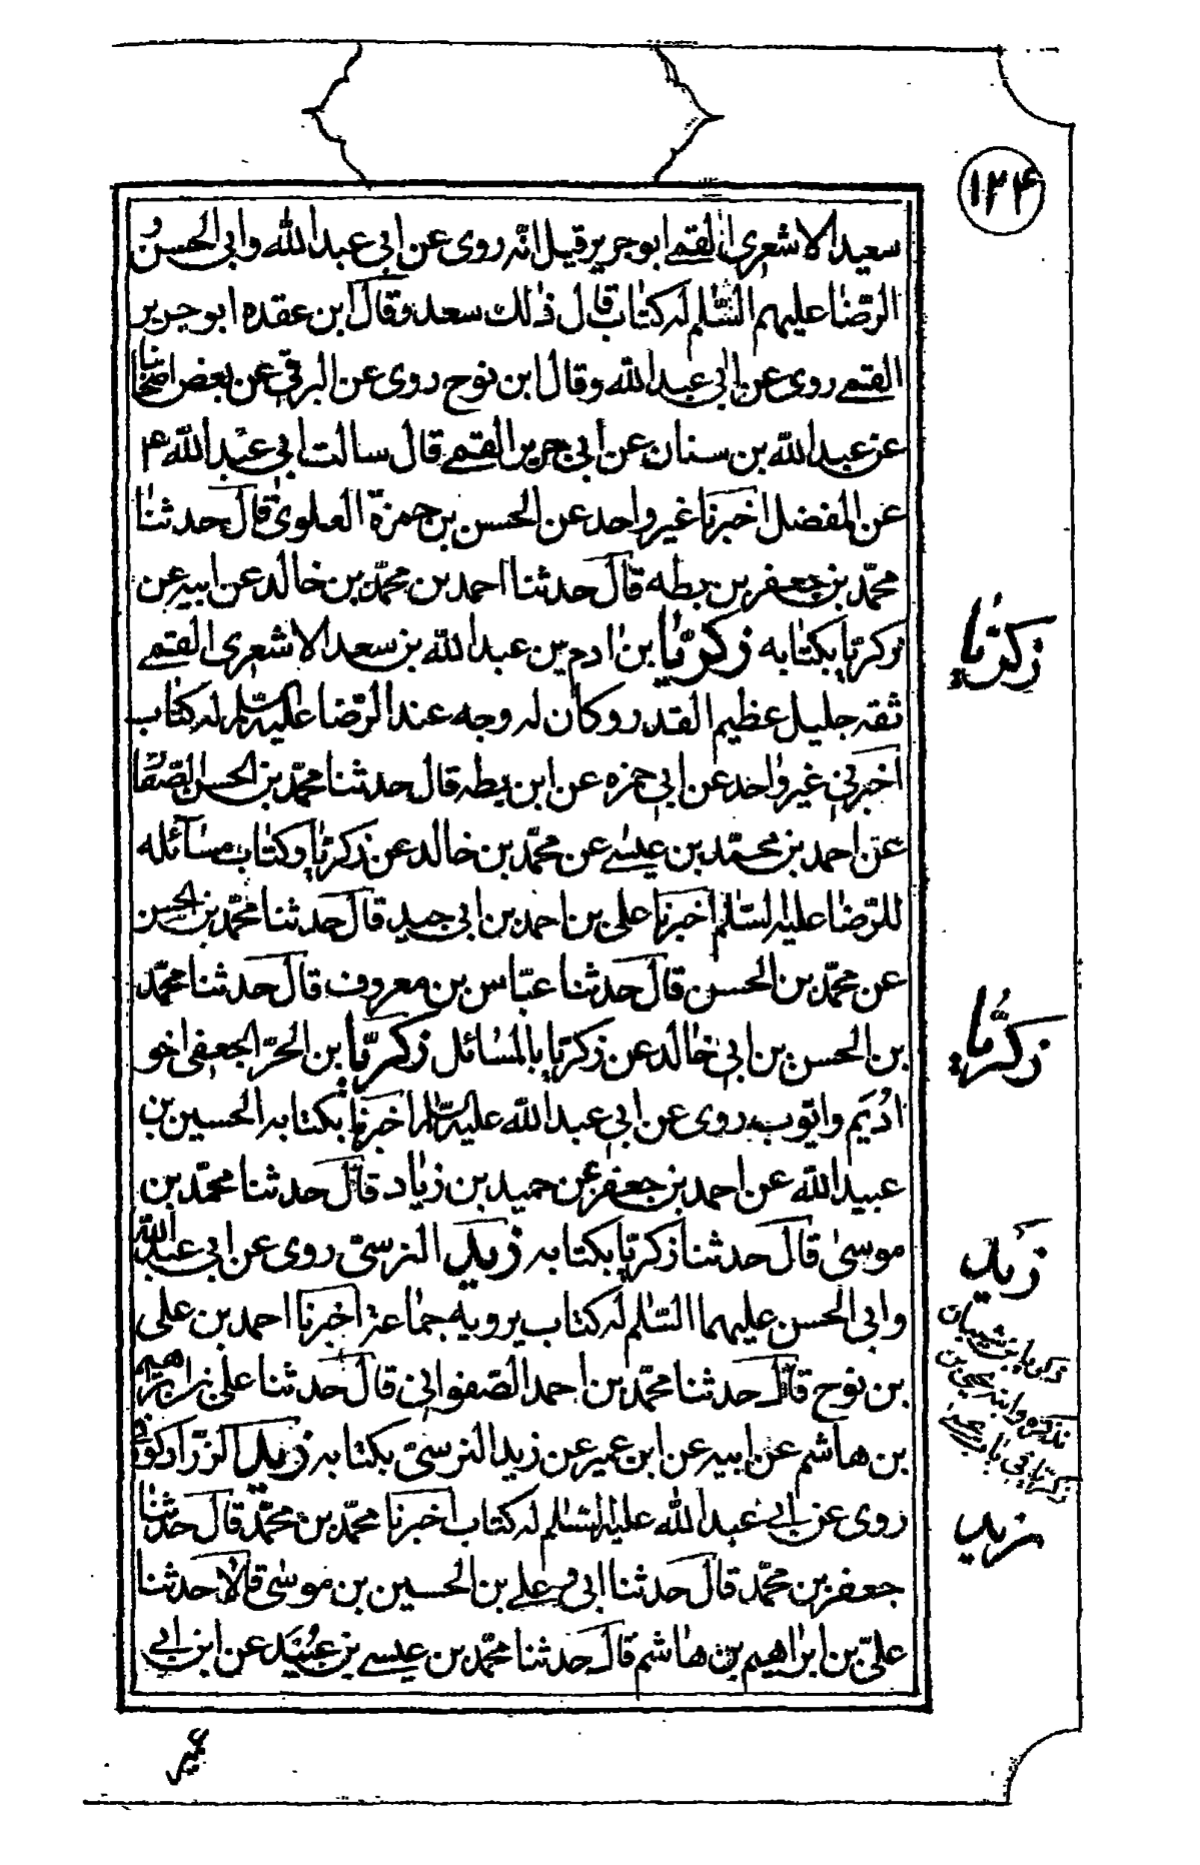 ١٢۴
سعيد الاشعرى القمى ابو جرير قيل انّه روى عن ابى عبد الله وابى الحسن و
الرّضا عليهم السّلم له كتاب قال ذلك سعد وقال ابن عقده ابو جرير
القمى روى عن ابى عبد الله وقال ابن نوح روى عن البرقى عن بعض اصحابنا
عن عبد الله بن سنان عن ابى جرير القمى قال سالت ابى عبد الله ع
عن المفضل اخبرنا غير واحد عن الحسن بن حمزة العلوى قال حدثنا
محمّد بن جعفر بن بطه قال حدثنا احمد بن محمّد بن خالد عن ابيه عن
زكريّا بكتابه زكريّا بن ادم بن عبد الله بن سعد الاشعرى القمى
ثقه جليل عظيم القدر وكان له وجه عند الرّضا عليه السّلم له كتاب
اخبرنى غير واحد عن ابى حمزه عن ابن بطه قال حدثنا محمّد بن الحسن الصّفار
عن احمد بن محمّد بن عيسى عن محمّد بن خالد عن زكريّا وكتاب مسائله
للرّضا عليه السّلم اخبرنا على بن احمد بن ابى جيد قال حدثنا محمّد بن الحسن
عن محمّد بن الحسن قال حدثنا عبّاس بن معروف قال حدثنا محمّد
بن الحسن بن ابى خالد عن زكريّا بالمسائل زكريّا بن الحرّ الجعفى اخو
اُدَيم وايّوب روى عن ابى عبد الله عليه السّلم اخبرنا بكتابه الحسين بن
عبيد الله عن احمد بن جعفر عن حميد بن زياد قال حدثنا محمّد بن
موسى قال حدثنا زكريّا بكتابه زيد النرسىّ روى عن ابى عبد الله
وابى الحسن عليهما السّلم له كتاب يرويه جماعة اخبرنا احمد بن على
بن نوح قال حدثنا محمّد بن احمد الصّفوانى قال حدثنا على بن ابراهيم
بن هاشم عن ابيه عن ابن عمير عن زيد النرسىّ بكتابه زيد الزّراد كوفى
روى عن ابى عبد الله عليه السّلم له كتاب اخبرنا محمّد بن محمّد قال حدثنا
جعفر بن محمّد قال حدثنا ابى و على بن الحسين بن موسى قالا حدثنا
علىّ بن ابراهيم بن هاشم قال حدثنا محمّد بن عيسى بن عُبَيد عن ابن ابى
عمير
زكريّا
زكريّا
زيد
زيد